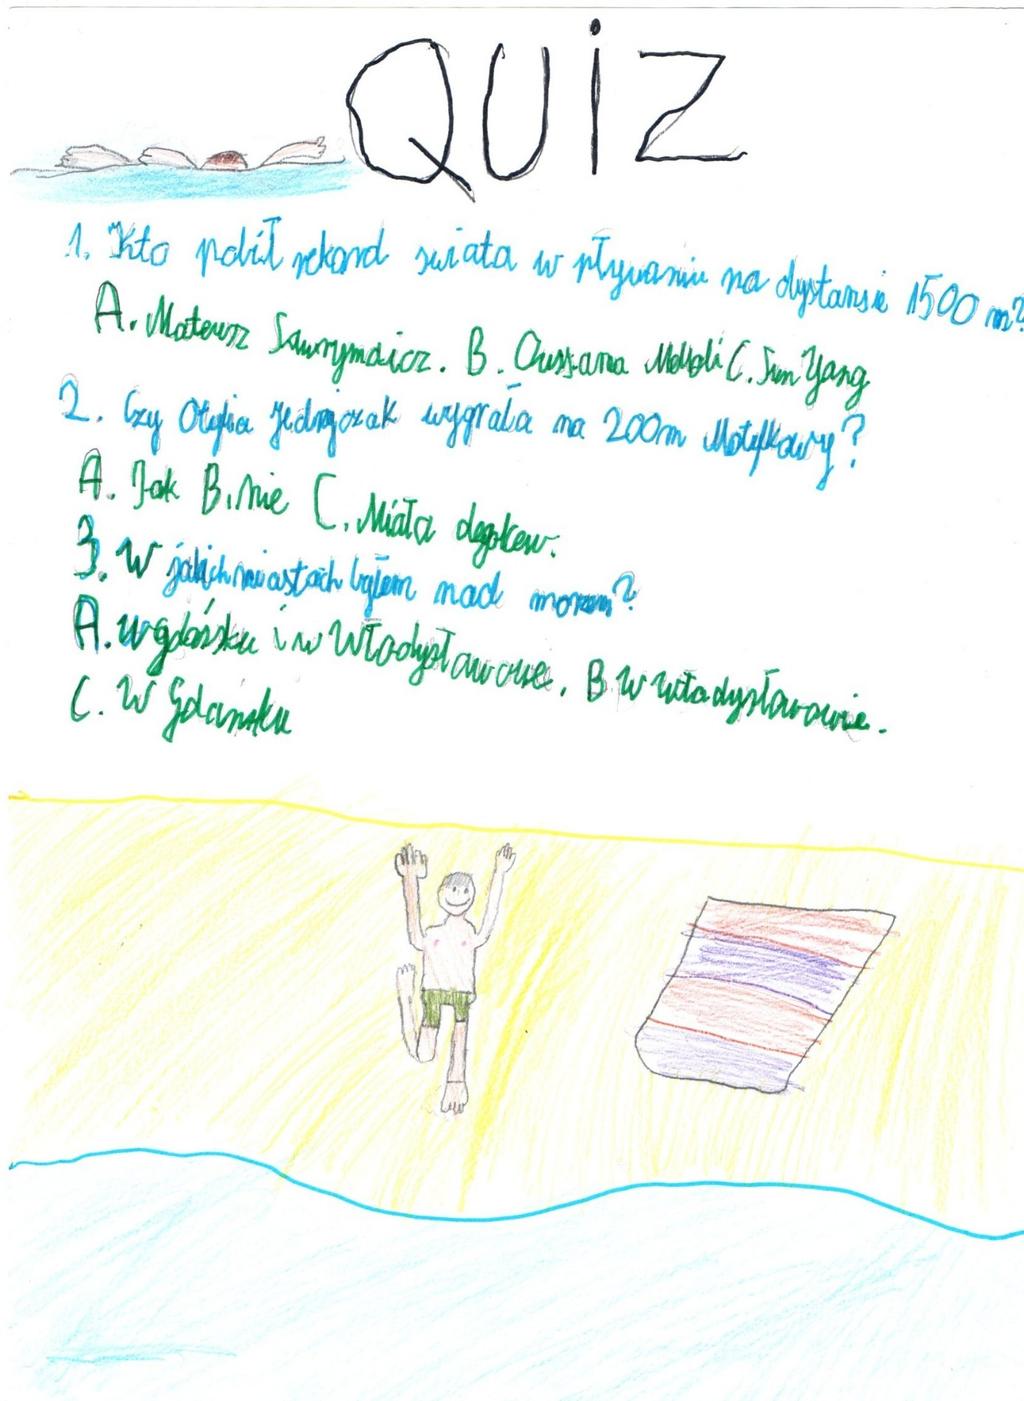 QUiZ
1. Kto pobił rekord swiata w pływaniu na dystansie 1500 m?
A. Mateusz Sawrymoicz. B. Oussama Mellouli C. Sun Yang
2. Czy Otylia Jedrzejczak wygrała na 200m Motylkowy?
A. Tak B. Nie C. Miała degokew.
3. W jakich miastach byłem nad morzem?
A. W gdańsku i w Włodysławowie. B W Władysławowie.
C. W Gdańsku